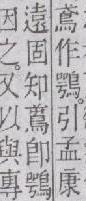 鳶作鶚。引孟康
遠固知蔿卽鶚
因之。又以與專